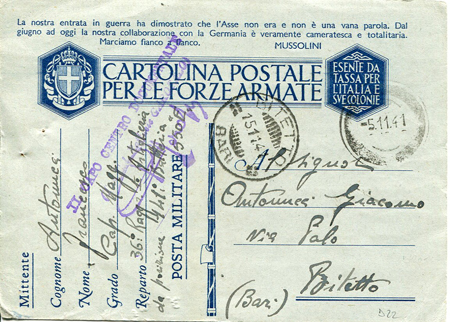 La nostra entrata in guerra ha dimostrato che l'Asse non era e non è una vana parola. Dal
giugno ad oggi la nostra collaborazione con la Germania è veramente cameratesca e totalitaria.
Marciamo fianco a fianco.
MUSSOLINI
CARTOLINA POSTALE
PER LE FORZE ARMATE
ESENTE DA
TASSA PER
L'ITALIA E
SVE COLONIE
BITETTO
BARI
5.11.41
Al Signor
Antonucci Giacomo
Via Palo
Bitetto
(Bari)
Mittente
Cognome Antonucci
Nome Francesco
Grado Cap. Magg.
Reparto 36° Ragg.
da posizione
POSTA MILITARE
D22